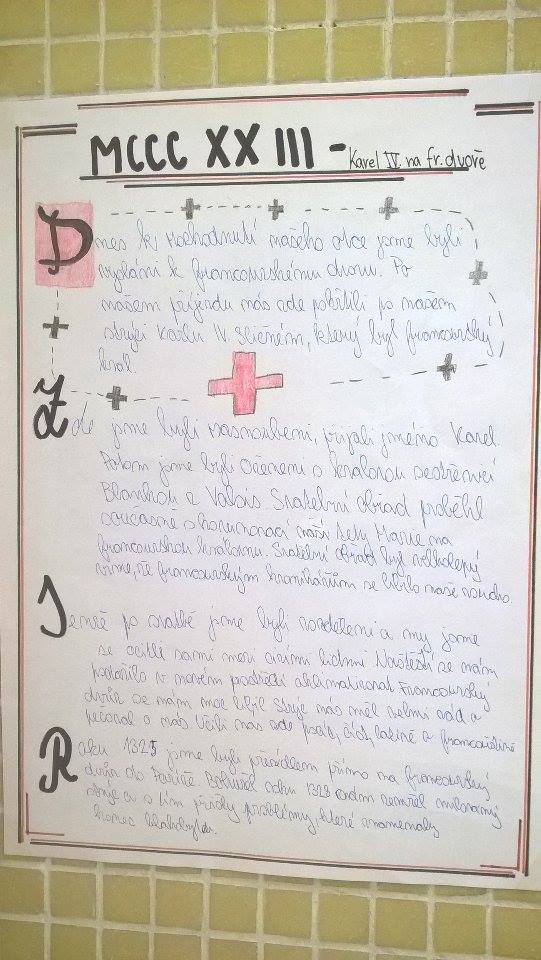 MCCC XX III - Karel IV. na fr. dvoře
Dnes k rozhodnutí našeho otce jsme byli
vysláni k francouzskému dvoru. Po
našem příjezdu nás zde pokřtili po našem
strýci Karlu IV. Sličném, který byl francouzský
král.
Zde jsme byli zasnoubeni, přijali jméno Karel
Potom jsme byli oženeni s královou sestřenicí
Blankou z Valois. Svatební obřad proběhl
současně s korunovací naší tety Marie na
francouzskou královnu. Svatební obřad byl velkolepý
víme, že francouzským kronikářům se líbilo naše roucho.
Jenže po svatbě jsme byli rozděleni a my jsme
se ocitli sami mezi cizími lidmi Naštěstí se nám
podařilo v novém prostředí aklimatizovat Francouzský
dvůr se nám moc líbil Strýc nás měl velmi rád a
pečoval o nás Učili nás zde psát, číst, latině a francouzštině
Roku 1325 jsme byli převezeni přímo na francouzský
dvůr do Paříže Bohužel roku 1328 zemřel milovaný
strýc a s tím přišly problémy, které znamenaly
konec blahobytu.